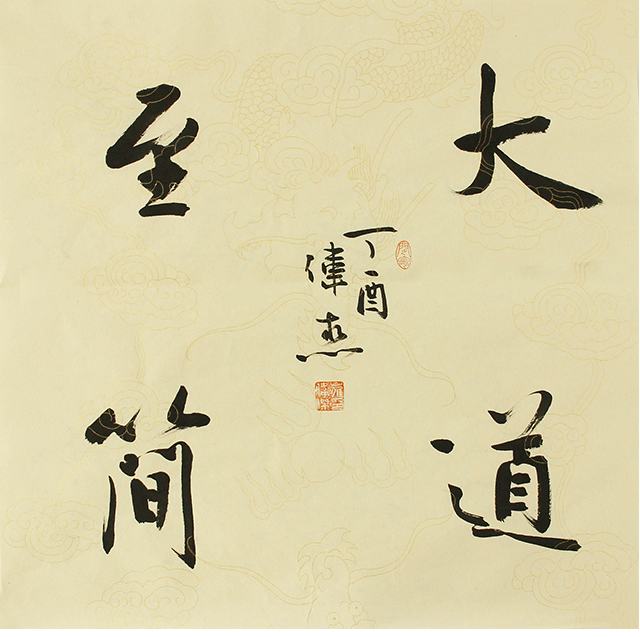 大道
至簡
丁酉
偉杰